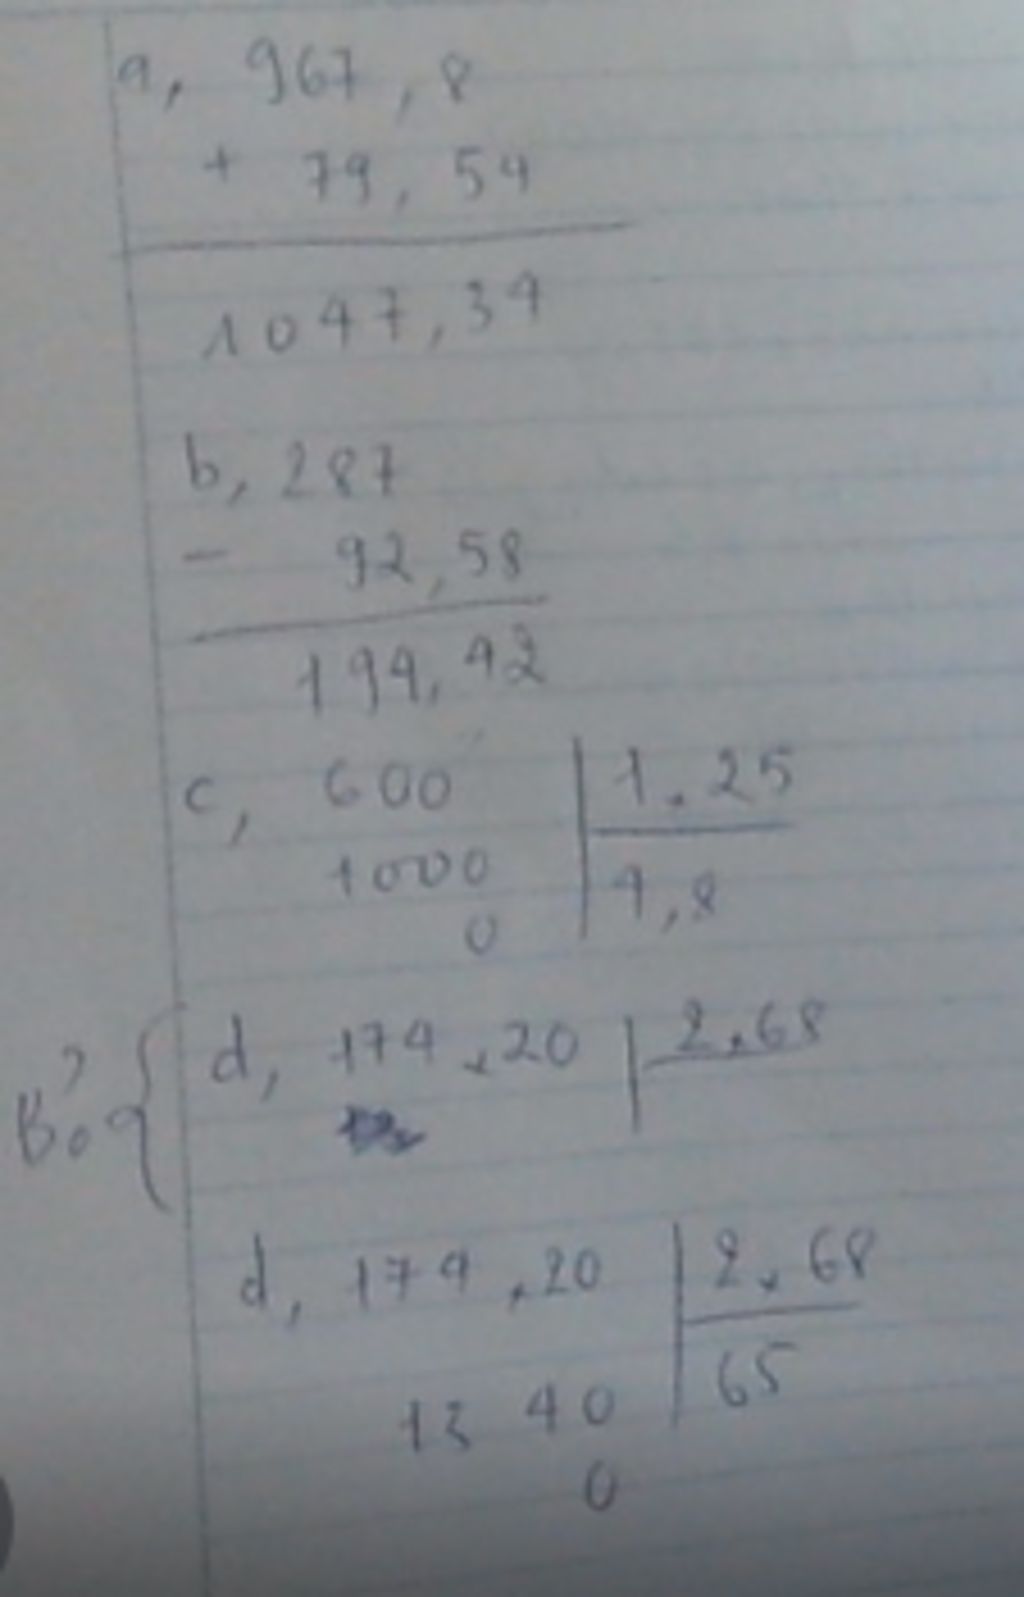 a, 967,8
+ 79,54
1047,34
b, 287
- 92,58
194,42
c, 600 | 1.25
1000 | 4,8
0
Bỏ { d, 174,20 | 2.68
d, 174,20 | 2,68
13 40 | 65
0